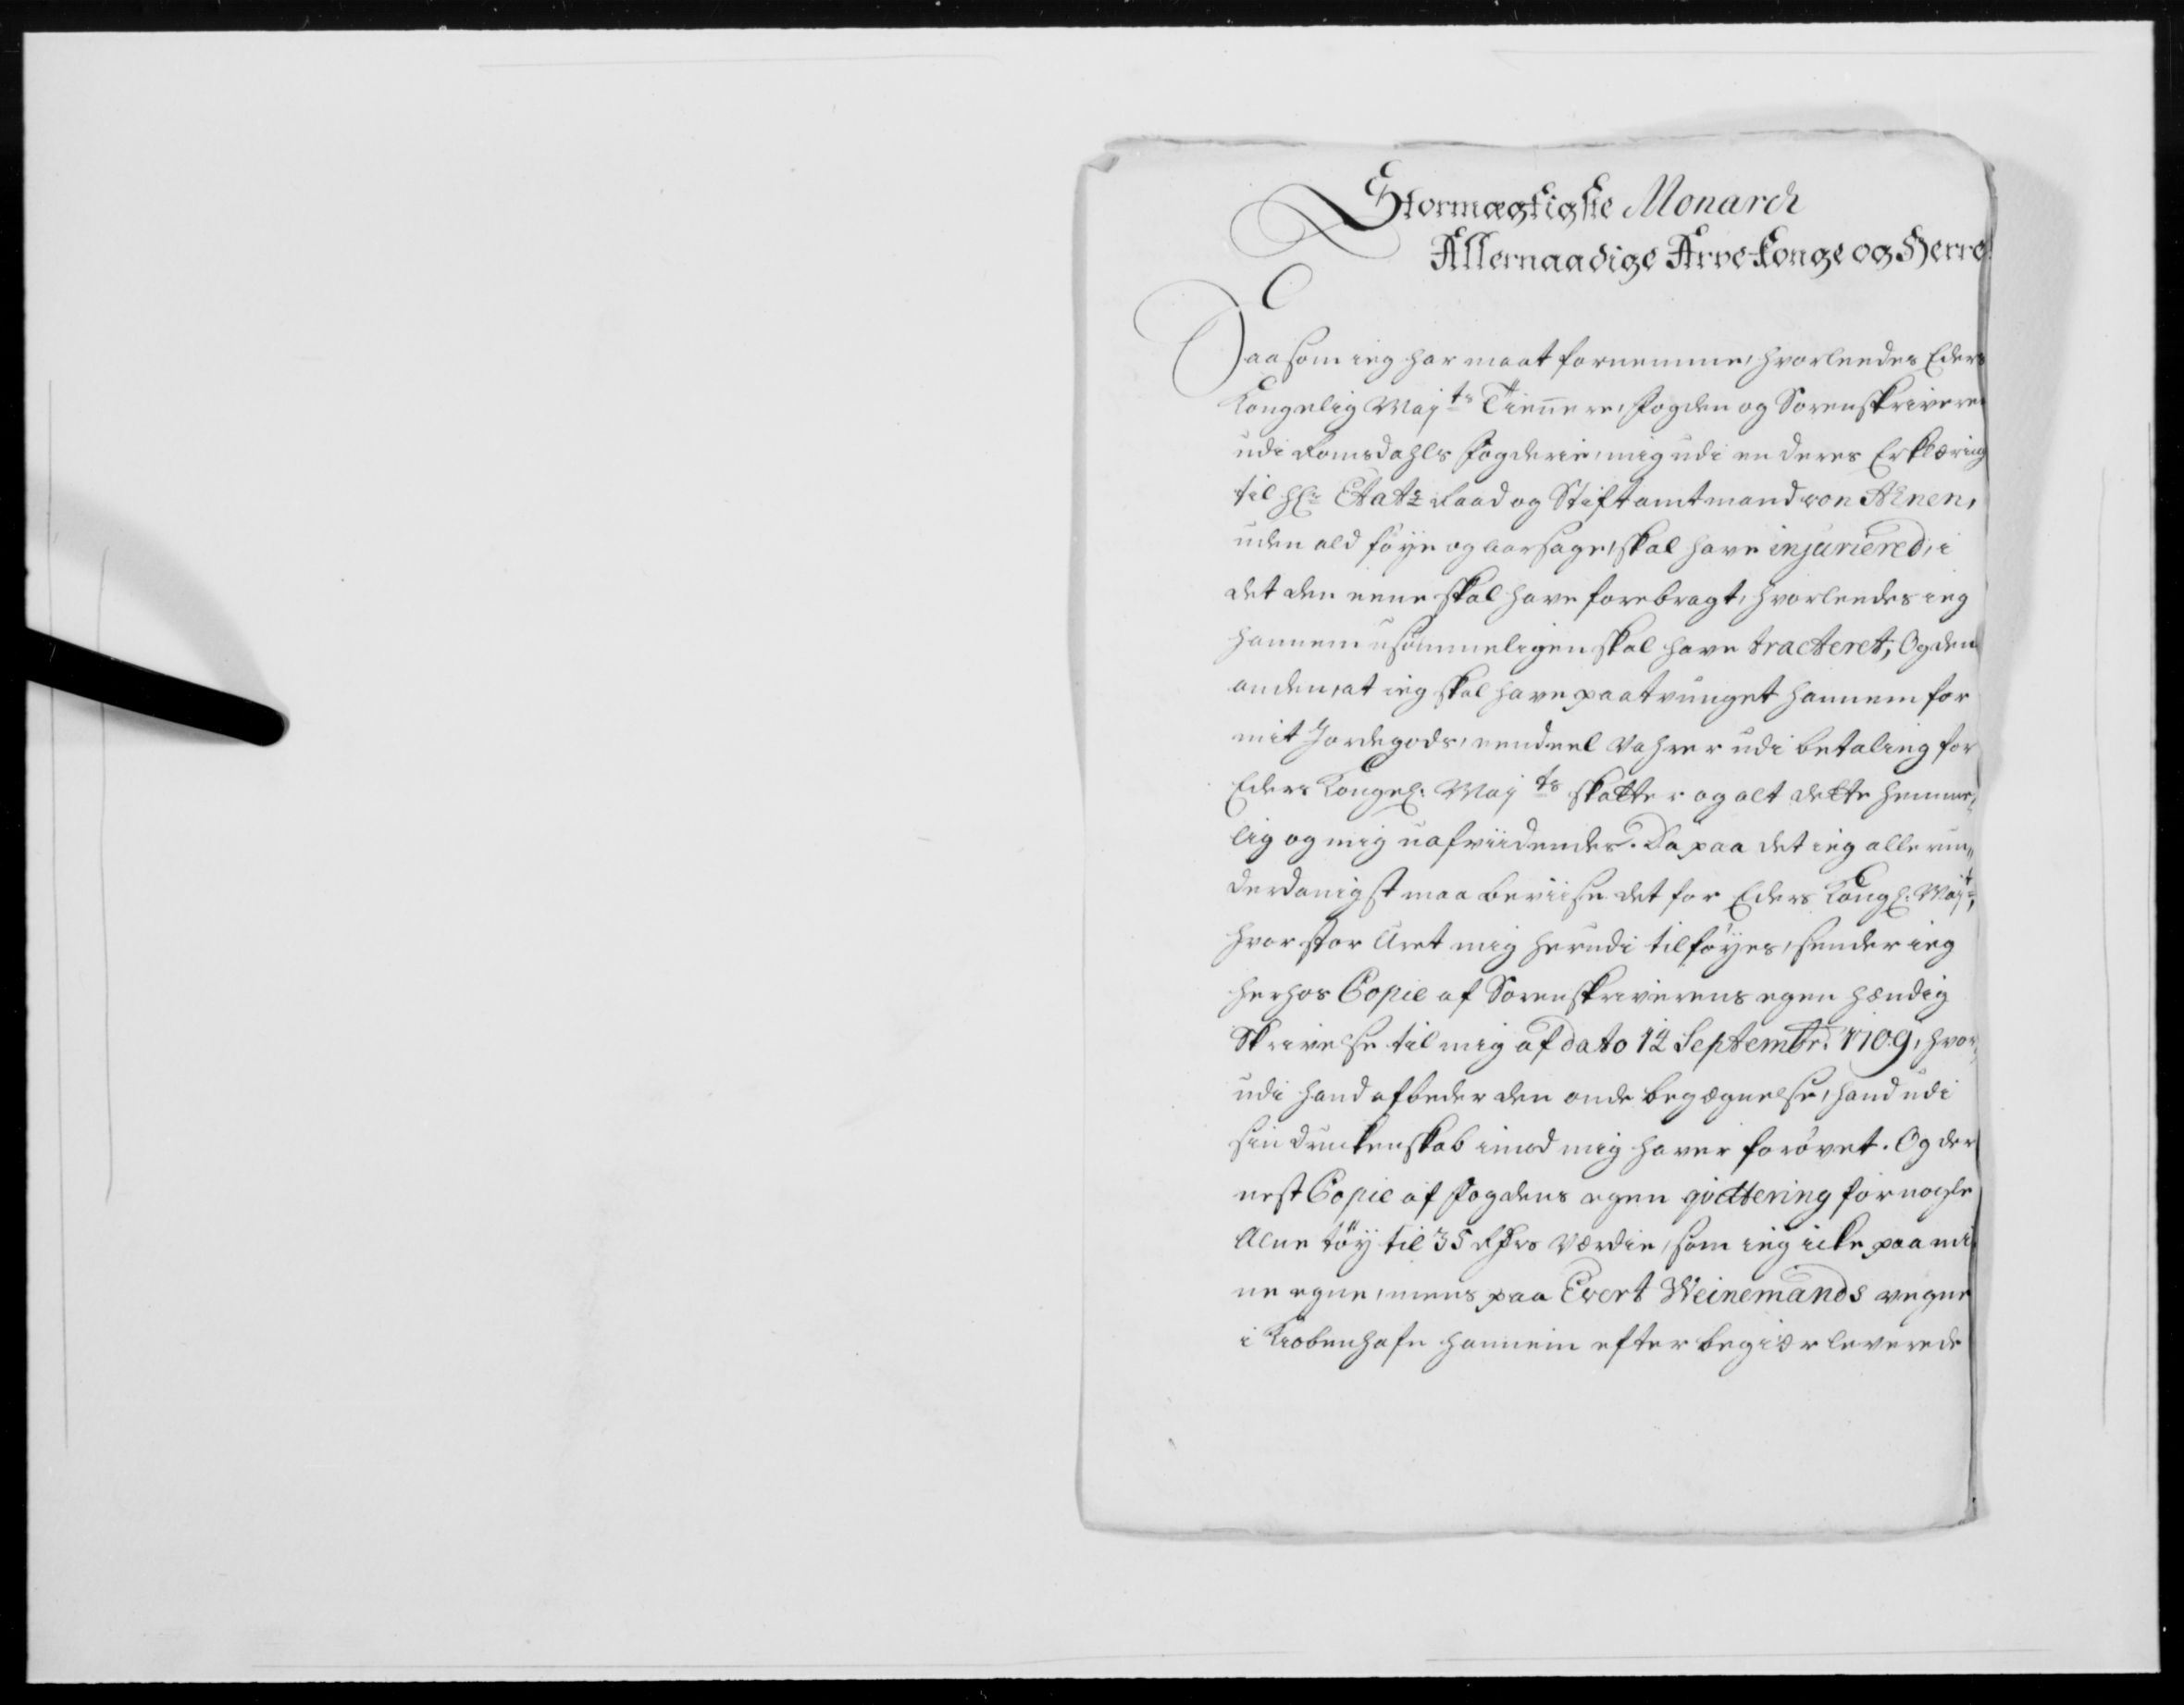 Stormægtigste Monarch
Allernaadige Arve-Konge og Herre!
Saasom ieg har maat fornemme, hvorleedes Eders
Kongelig Mayts Tiennere, Fogden og Sorenskriveren
udi Romsdahls Fogderie, mig udi en deres Erklæring
til Hr Etats Raad og Stiftamtmand von Ahnen,
uden ald föye og aarsage, skal have injuriered, i
det den eene skal have forebragt, hvorleedes ieg
hannem usömmeligen skal have tracteret, Og den
anden, at ieg skal have paatvunget hannem for
mit Jordegods, eendeel Vahrer udi betaling for
Eders Kongel: Mayts skatter og alt dette hemme,,
lig og mig uafviidendes. Da paa det ieg allerun,,
derdanigst maa beviise det for Eders Kongl: Mayt,
hvor stor Uret mig herudi tilföyes, sender ieg
herhos Copie af Sorenskriverens egen hændig
Skrivelse til mig af dato 12 Septembr: 1709, hvor,,
udi hand afbeder den onde begægnelse, hand udi
sin druckenskab imod mig haver forövet. Og der
nest Copie af Fogdens egen qvittering for nogle
Alne töy til 35 Rdrs Værdie, som ieg icke paa mi
ne egne, mens paa Evert Weinemands vegne
i Kiöbenhafn hannem efter begiær leverede